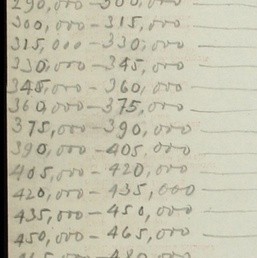 290,000 - 300,000
300,000 - 315,000
315,000 - 330,000
330,000 - 345,000
345,000 - 360,000
360,000 - 375,000
375,000 - 390,000
390,000 - 405,000
405,000 - 420,000
420,000 - 435,000
435,000 - 450,000
450,000 - 465,000
465,000 - 480,000